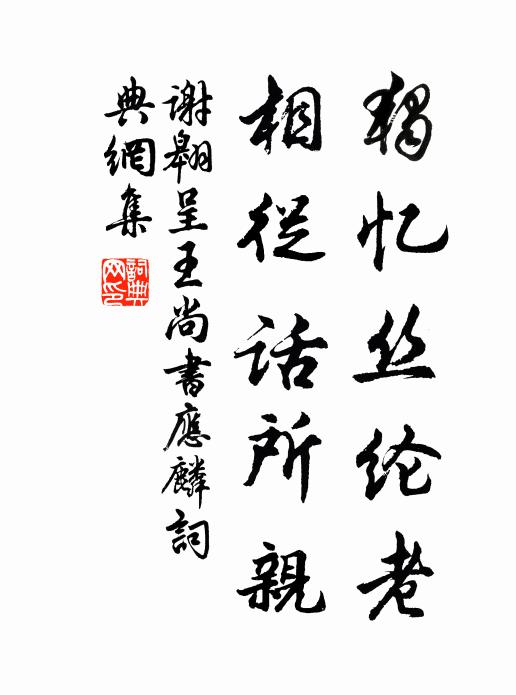 獨忆丝纶老
相從話所親
謝翱呈王尚書應麟詞
典網集
詞典网印